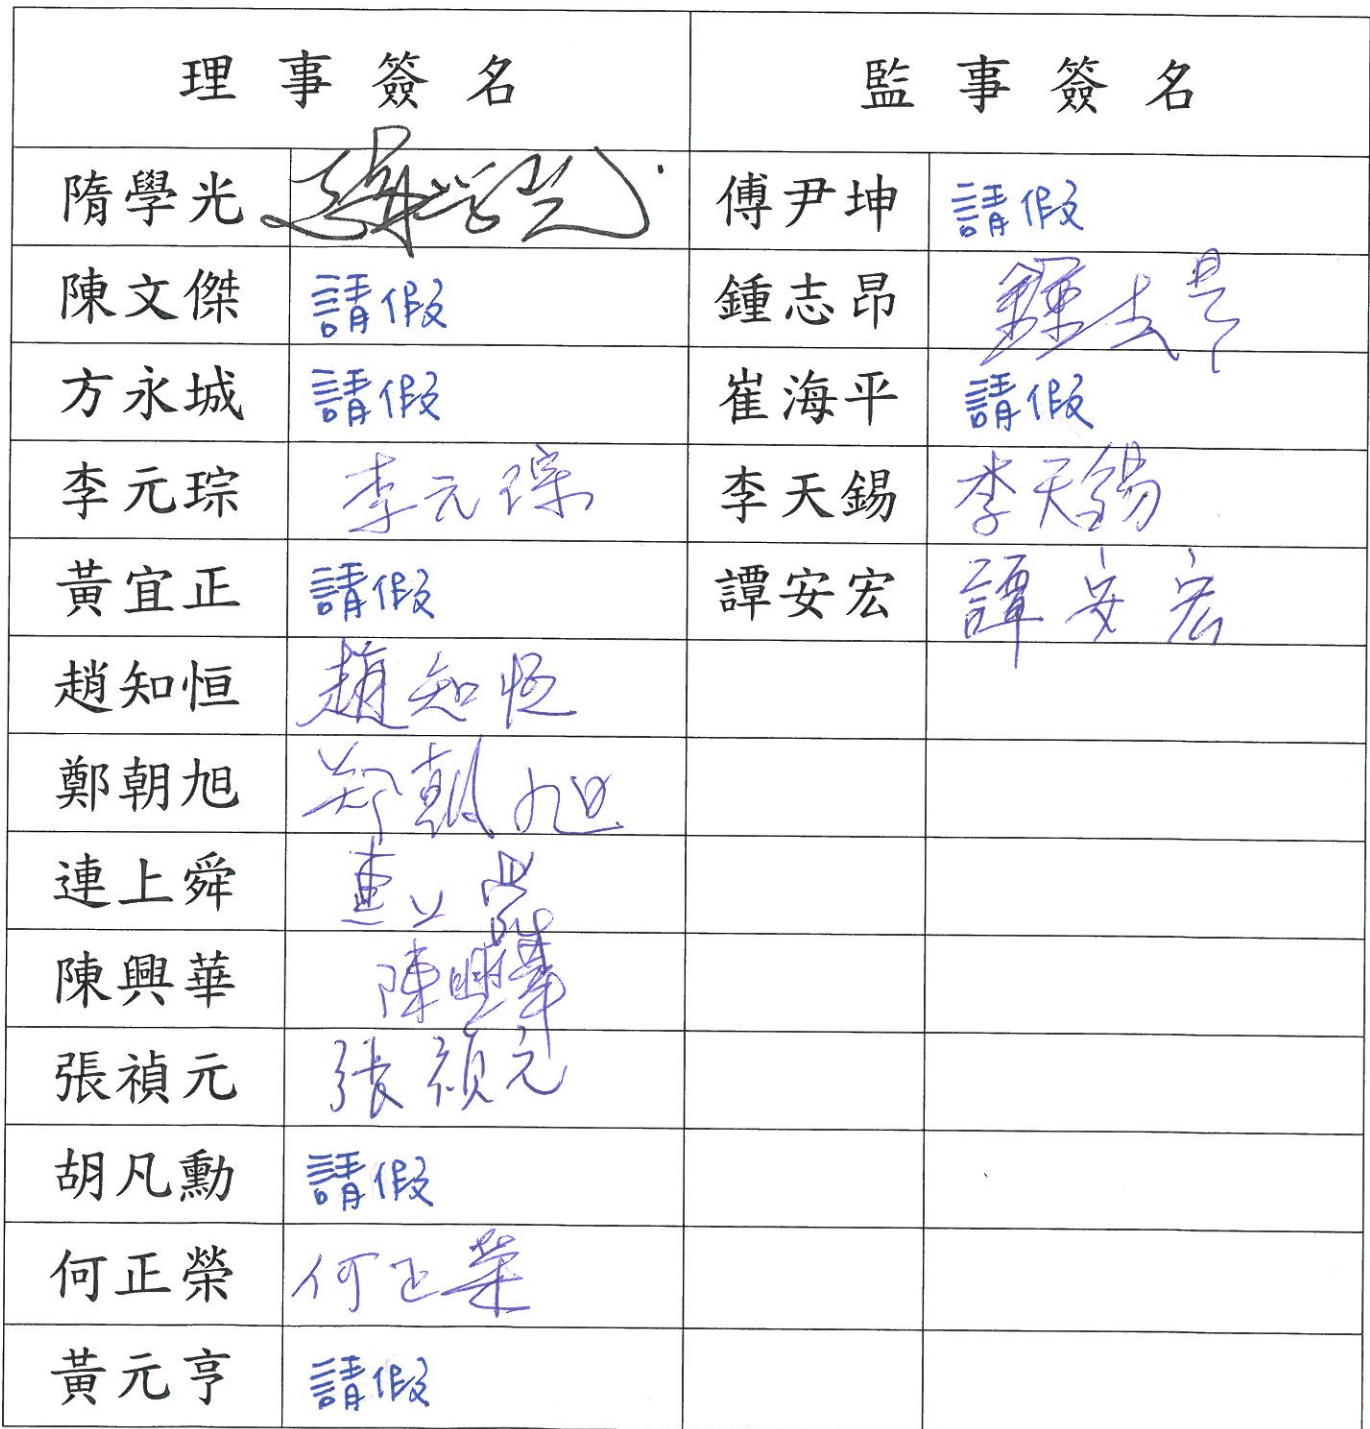 理事簽名 監事簽名
隋學光 隋学光 傅尹坤 請假
陳文傑 請假 鍾志昂 鍾志昂
方永城 請假 崔海平 請假
李元琮 李元琮 李天錫 李天錫
黃宜正 請假 譚安宏 譚安宏
趙知恒 趙知恒
鄭朝旭 郑朝旭
連上舜 連上舜
陳興華 陳興華
張禎元 張禎元
胡凡勳 請假
何正榮 何正荣
黃元亨 請假